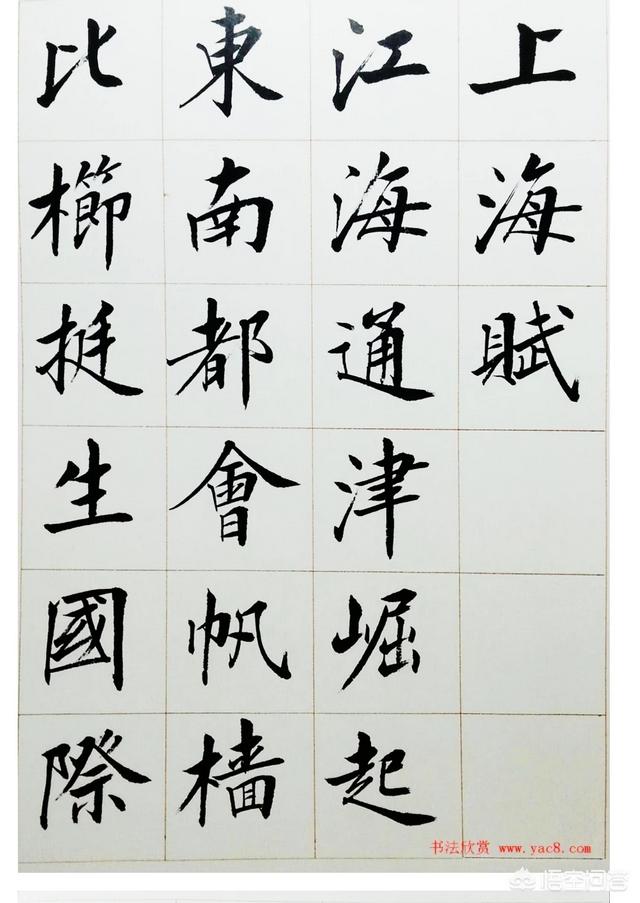 上海賦
江海通津崛起
東南都會帆檣
比櫛挺生國際
书法欣赏 www.yac8.com
悟空问答